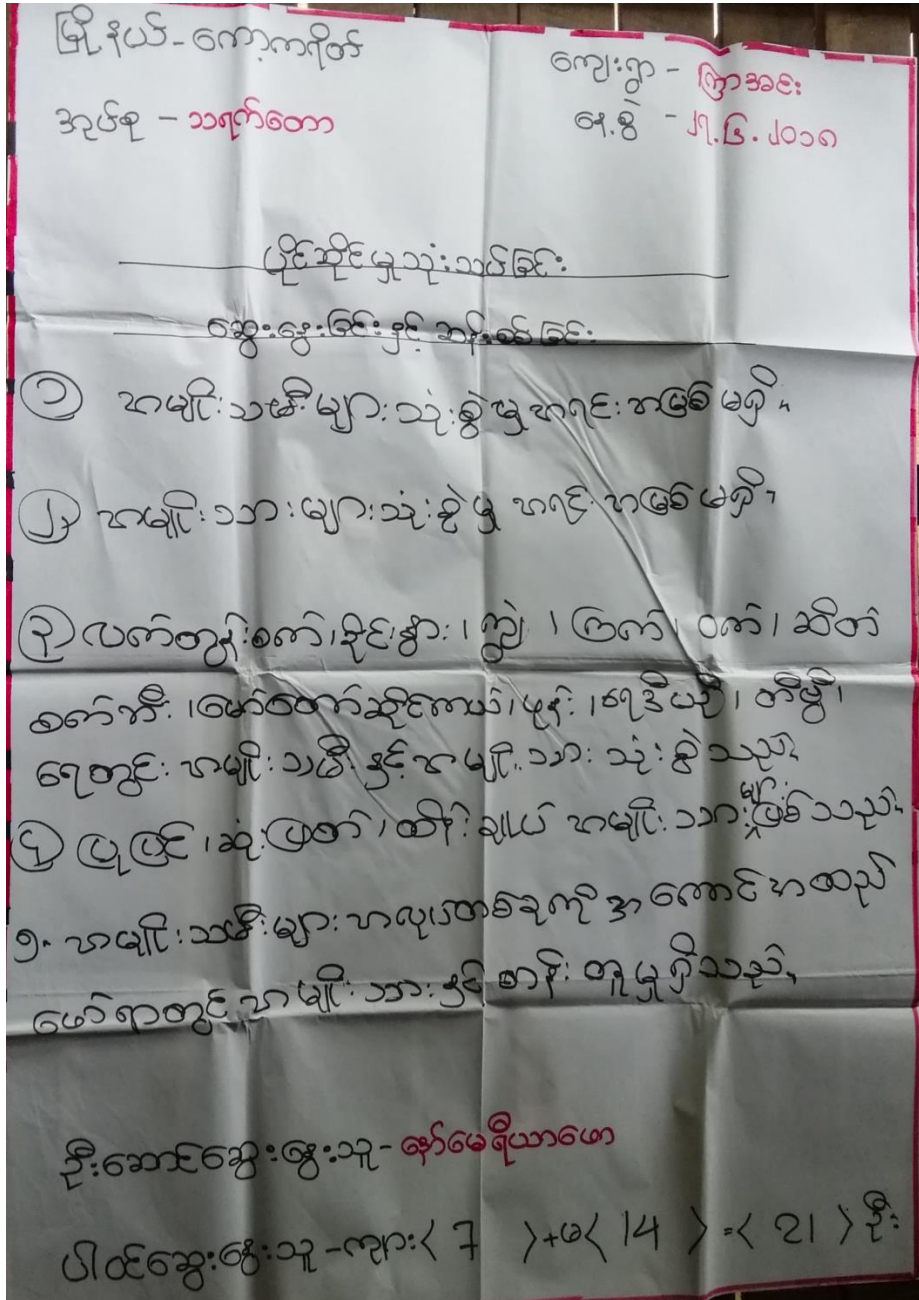 မြို့နယ်-ကော့ကရိတ်
ကျေးရွာ - ကြာအင်း
အုပ်စု - သရက်တော
နေ့စွဲ - ၂၇.၆.၂၀၁၈
ပိုင်ဆိုင်မှုသုံးသပ်ခြင်း
ဆွေးနွေးခြင်းနှင့် ဆန်းစစ်ခြင်း
၁ အမျိုးသမီးများသုံးစွဲမှုအရင်းအမြစ်မရှိ။
၂ အမျိုးသားများသုံးစွဲမှု အရင်းအမြစ်မရှိ။
၃ လက်တွန်းစက်၊ခိုင်းနွား၊ကျွဲ၊ကြက်၊ဝက်၊ဆိတ်
စက်ဘီး၊မော်တော်ဆိုင်ကယ်၊ဖုန်း၊ရေဒီယို၊တီဗွီ၊
ရေတွင်း အမျိုးသမီးနှင့်အမျိုးသား သုံးစွဲသည်။
၄ ပြုပြင်၊ဆုံးဖြတ်၊ထိန်းချုပ် အမျိုးသားများဖြစ်သည်။
၅. အမျိုးသမီးများအလုပ်တစ်ခုကို အကောင်အထည်
ဖော်ရာတွင် အမျိုးသားနှင့်တန်းတူမှုရှိသည်။
ဦးဆောင်ဆွေးနွေးသူ-နော်မေရီယာဖော
ပါဝင်ဆွေးနွေးသူ-ကျား< 7 >+မ< 14 >=< 21 >ဦး